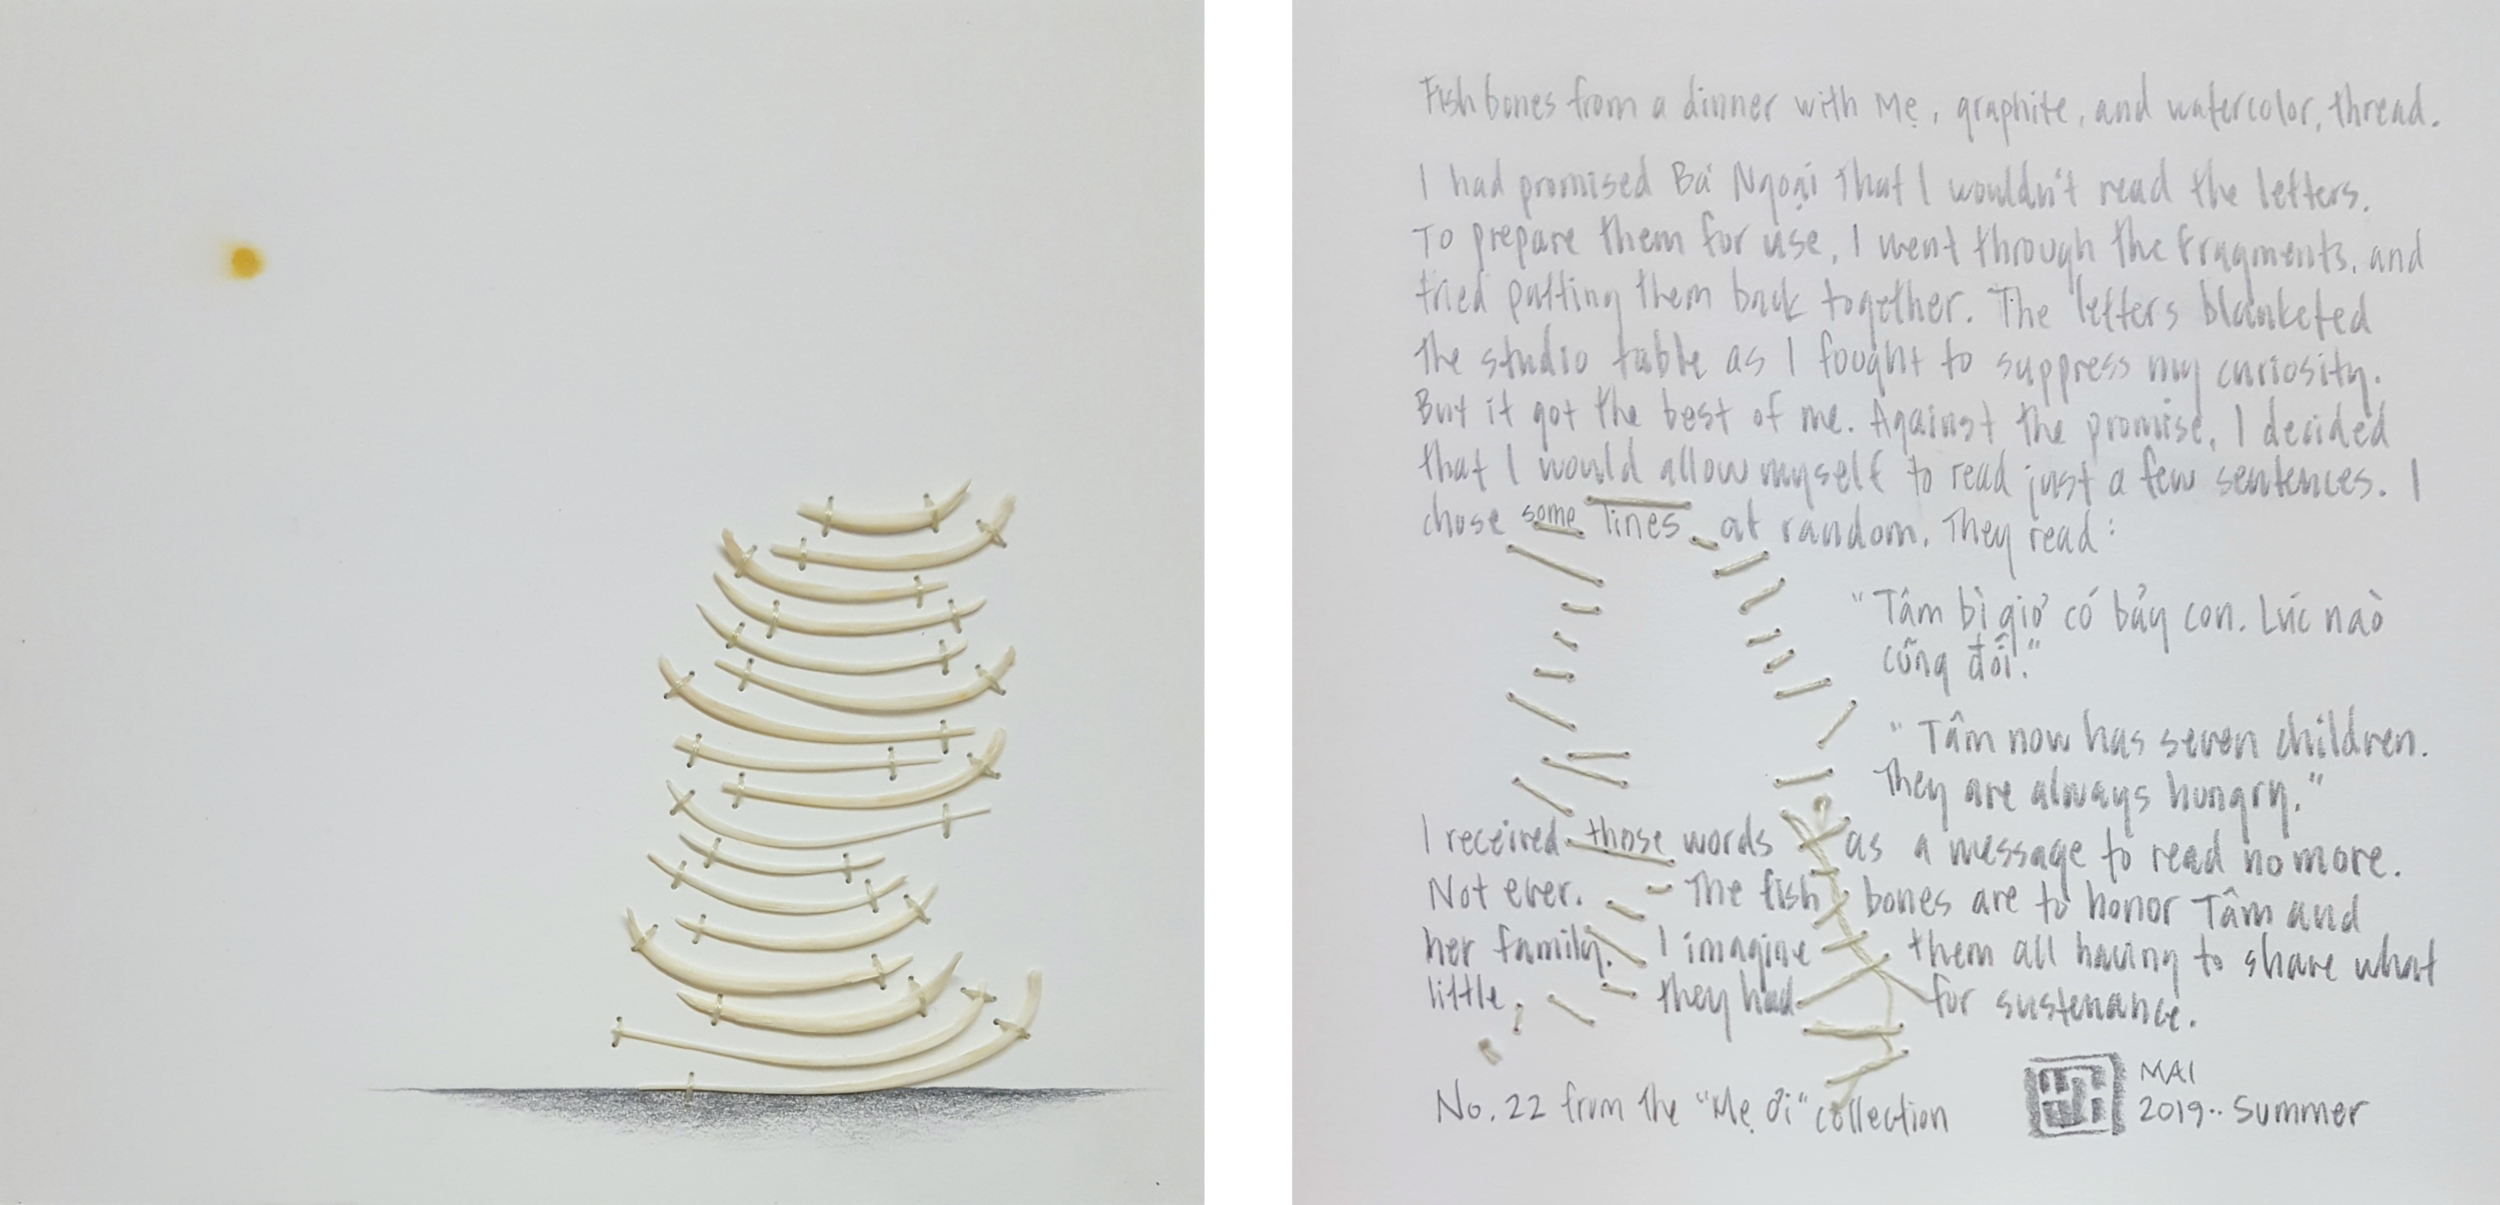 Fish bones from a dinner with Mẹ, graphite, and watercolor, thread.
I had promised Bà Ngoại that I wouldn't read the letters.
To prepare them for use, I went through the fragments, and
tried putting them back together. The letters blanketed
the studio table as I fought to suppress my curiosity.
But it got the best of me. Against the promise, I decided
that I would allow myself to read just a few sentences. I
chose some lines at random. They read:
"Tâm bì giờ có bảy con. Lúc nào
cũng đói."
"Tâm now has seven children.
They are always hungry."
I received those words as a message to read no more.
Not ever. The fish bones are to honor Tâm and
her family. I imagine them all having to share what
little, they had for sustenance.
No. 22 from the "Mẹ ơi" collection
MAI
2019.. Summer